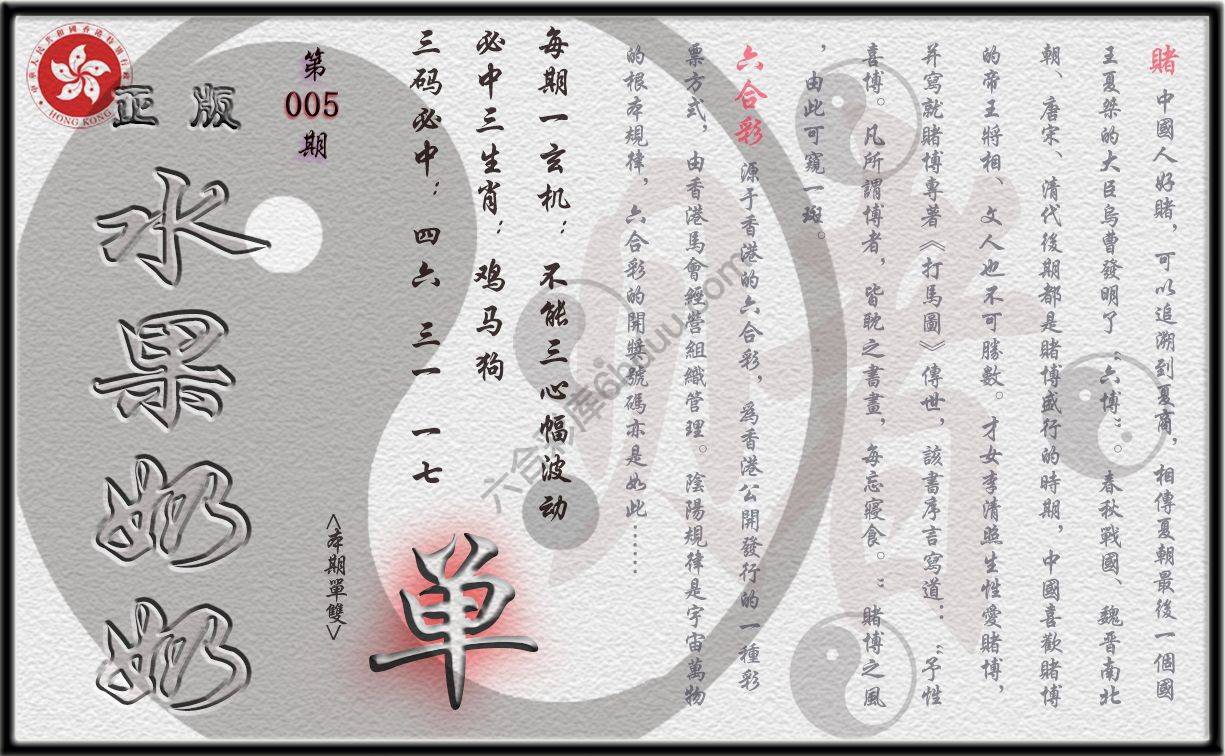 賭 中國人好賭，可以追溯到夏商，相傳夏朝最後一個國
王夏桀的大臣烏曹發明了“六博”。春秋戰國、魏晋南北
朝、唐宋、清代後期都是賭博盛行的時期，中國喜歡賭博
的帝王將相、文人也不可勝數。才女李清照生性愛賭博，
并寫就賭博專著《打馬圖》傳世，該書序言寫道：“予性
喜博。凡所謂博者，皆耽之書畫，每忘寢食。”賭博之風
，由此可窺一斑。
六合彩 源于香港的六合彩，為香港公開發行的一種彩
票方式，由香港馬會經營組織管理。陰陽規律是宇宙萬物
的根本規律，六合彩的開獎號碼亦是如此......
每期一玄机：不能三心幅波动
必中三生肖：鸡马狗
三码必中：四六 三一 一七
<本期單雙>
单
第
005
期
正版
水果奶奶
HONG KONG
六合彩库6hbduu.com